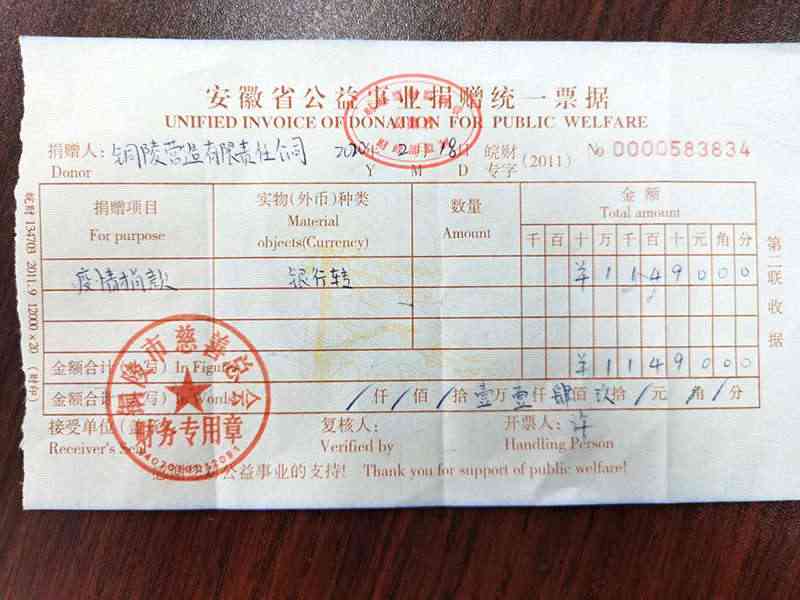 安徽省公益事业捐赠统一票据
UNIFIED INVOICE OF DONATION FOR PUBLIC WELFARE
捐赠人: 铜陵营造有限责任公司 2020年 2月 18日 皖财专字 (2011) No 0000583834
Donor Y M D
捐赠项目 实物(外币)种类 数量 金额
For purpose Material objects(Currency) Amount Total amount
千 百 十 万 千 百 十 元 角 分
疫情捐款 银行转 ¥ 1 1 4 9 0 0 0
金额合计 写) In Figu ¥ 1 1 4 9 0 0 0
金额合计 写) In Wor / 仟 / 佰 / 拾 壹万 壹仟 肆佰 玖拾 / 元 / 角 / 分
接受单位(盖 复核人: 开票人: 许
Receiver's Seal Verified by Handling Person
公益事业的支持! Thank you for support of public welfare!
铜陵市慈善总会
财务专用章
皖财 134703 2011.9 12000×20
第二联 收据